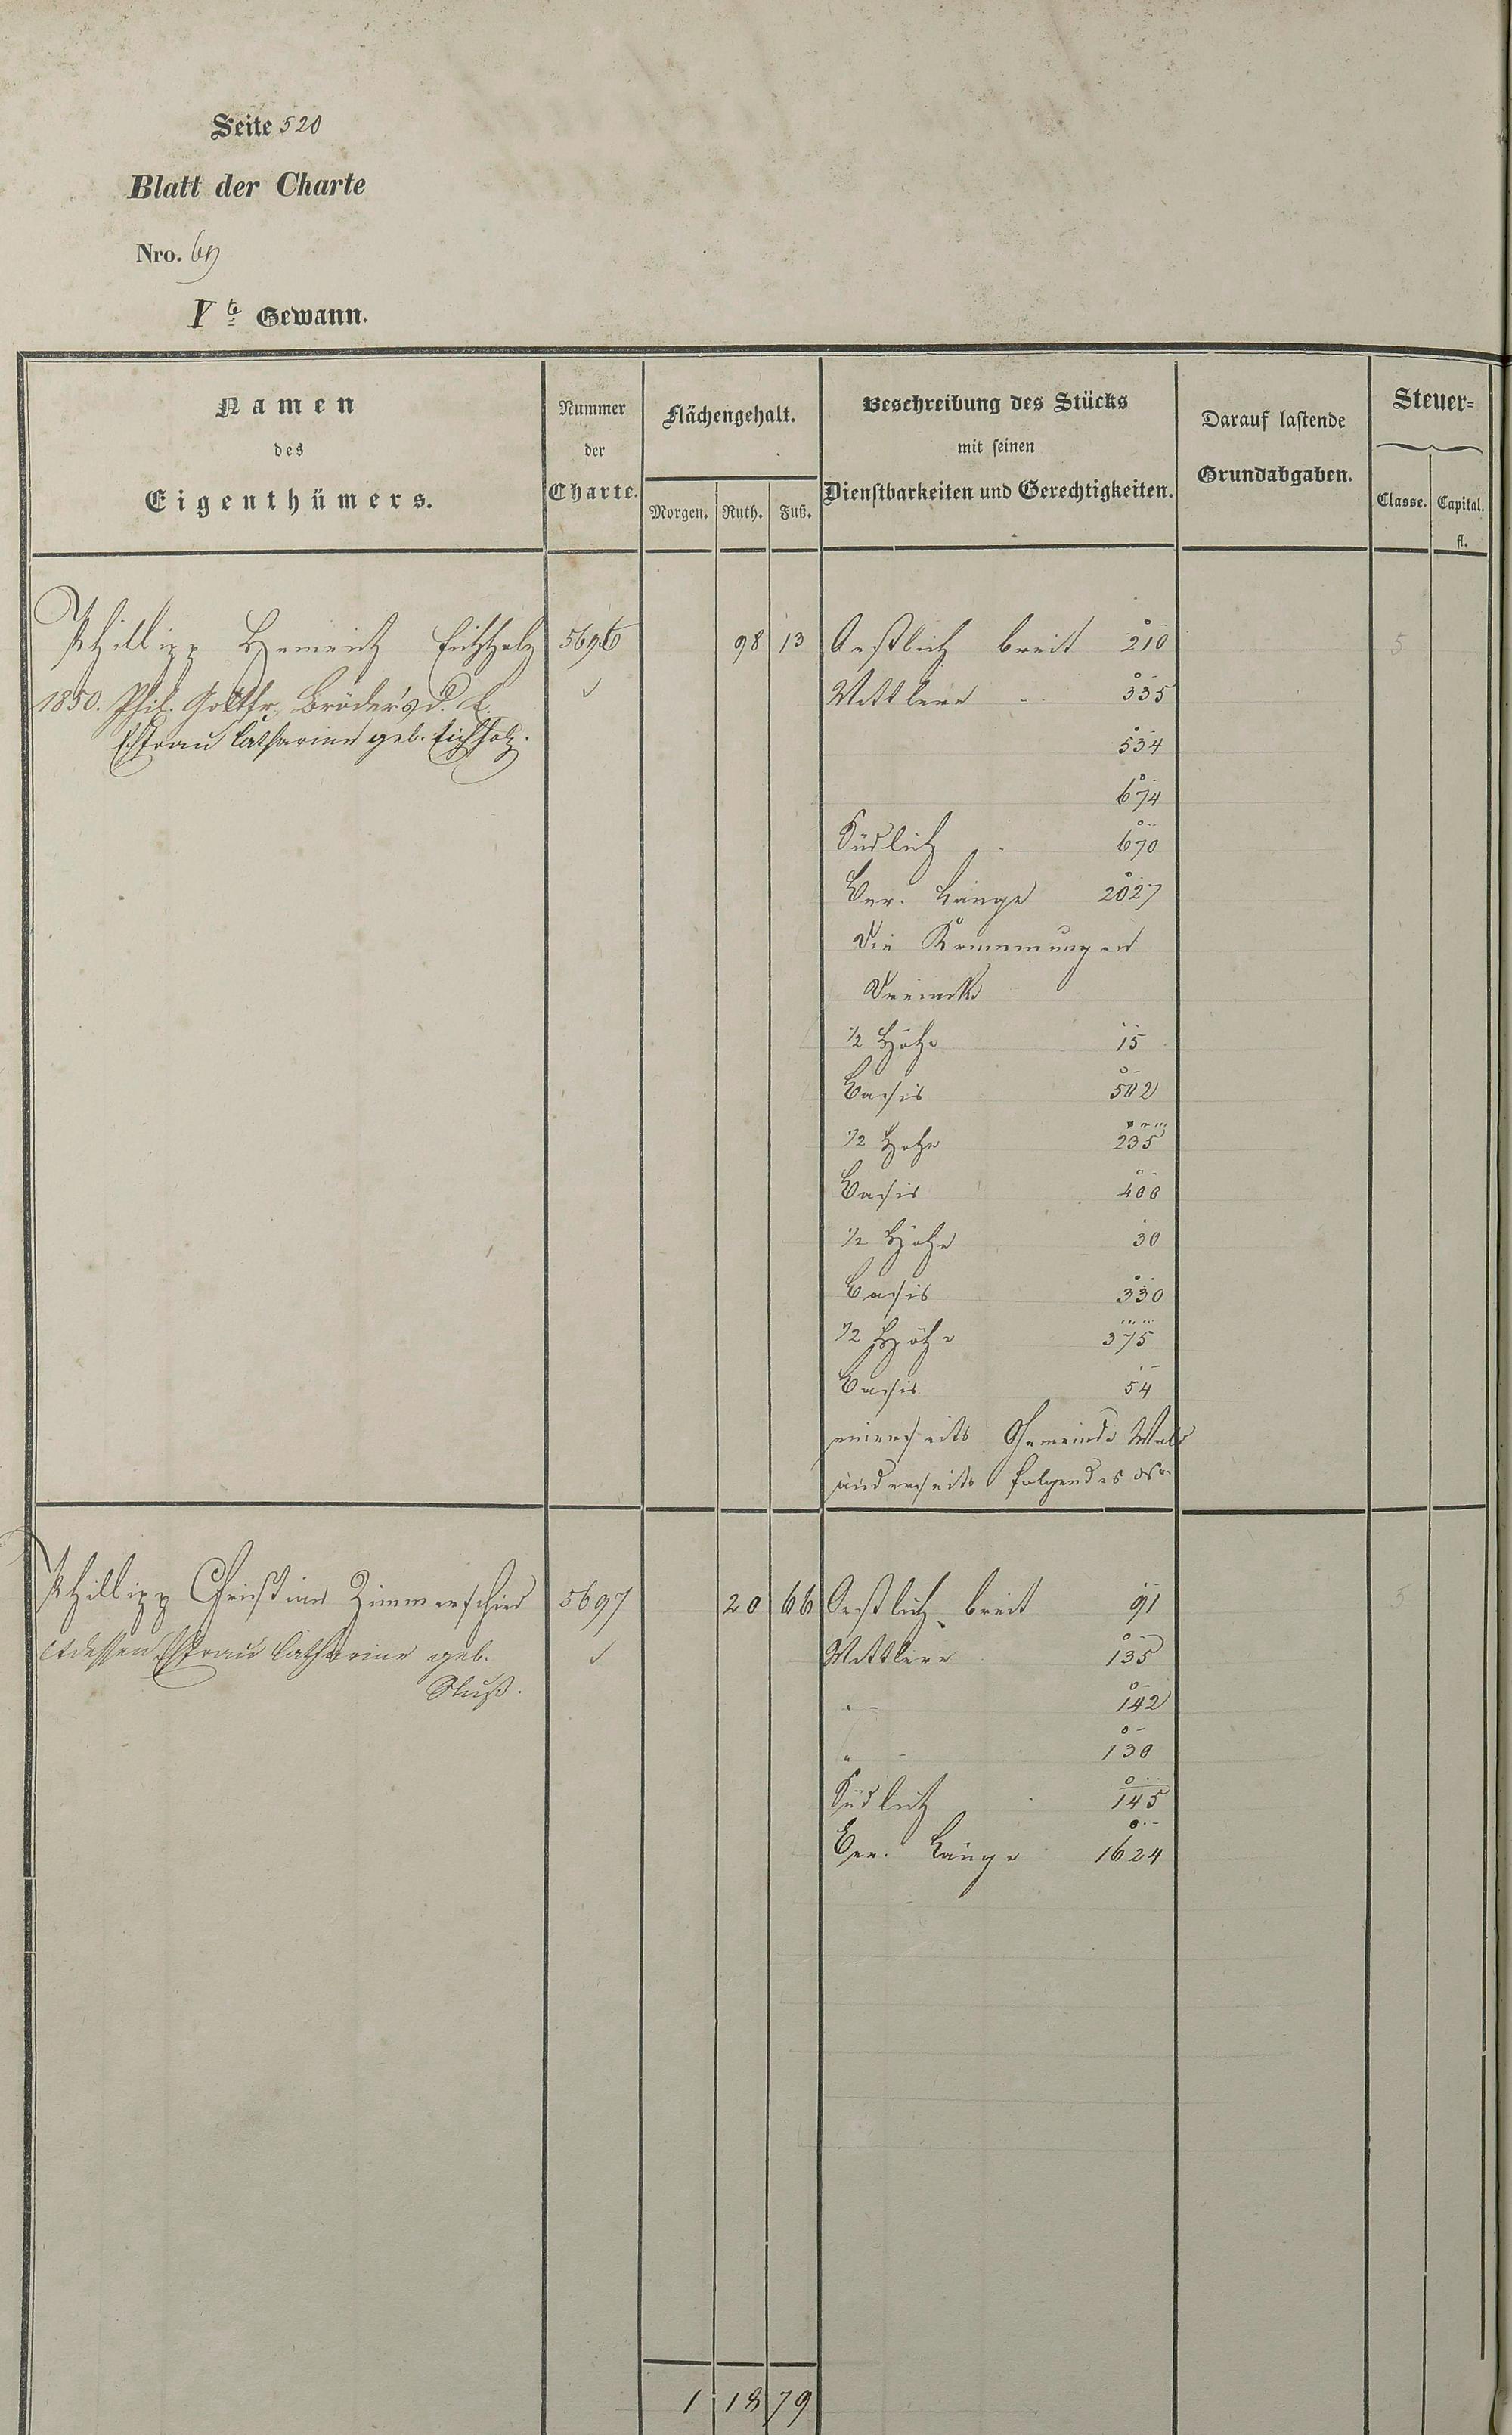 Seite 520
Blatt der Charte
Nro. 69
Vte Gewann.
Namen
des
Eigenthümers.
Nummer
der
Charte.
Flächengehalt.
Morgen. Ruth. Fuß.
Beschreibung des Stücks
mit seinen
Dienstbarkeiten und Gerechtigkeiten.
Darauf lastende
Grundabgaben.
Steuer=
Classe. Capital.
fl.
Phillipp Henrich Eichholz 5696 98 13 Oestlich breit 210 5
1850. Phil. Gottfr. Bröder's d. E. Mittlere 335
Ehfrau Catharine geb. Eichholz. 534
674
Südlich 670
Ver. Länge 2027
Die Krümmungen
Dreiecke
1/2 Höhe 15
Basis 502
1/2 Höhe 235
Basis 400
1/2 Höhe 30
Basis 330
1/2 Höhe 375
Basis 54
einerseits Gemeinde Wald
anderseits folgendes
Phillipp Christian Zimmerschied 5697 20 66 Oestlich breit 91 5
et dessen Ehfrau Catharine geb. Mittlere 135
" 142
" 130
Südlich 145
Ver. Länge 1624
1 18 79